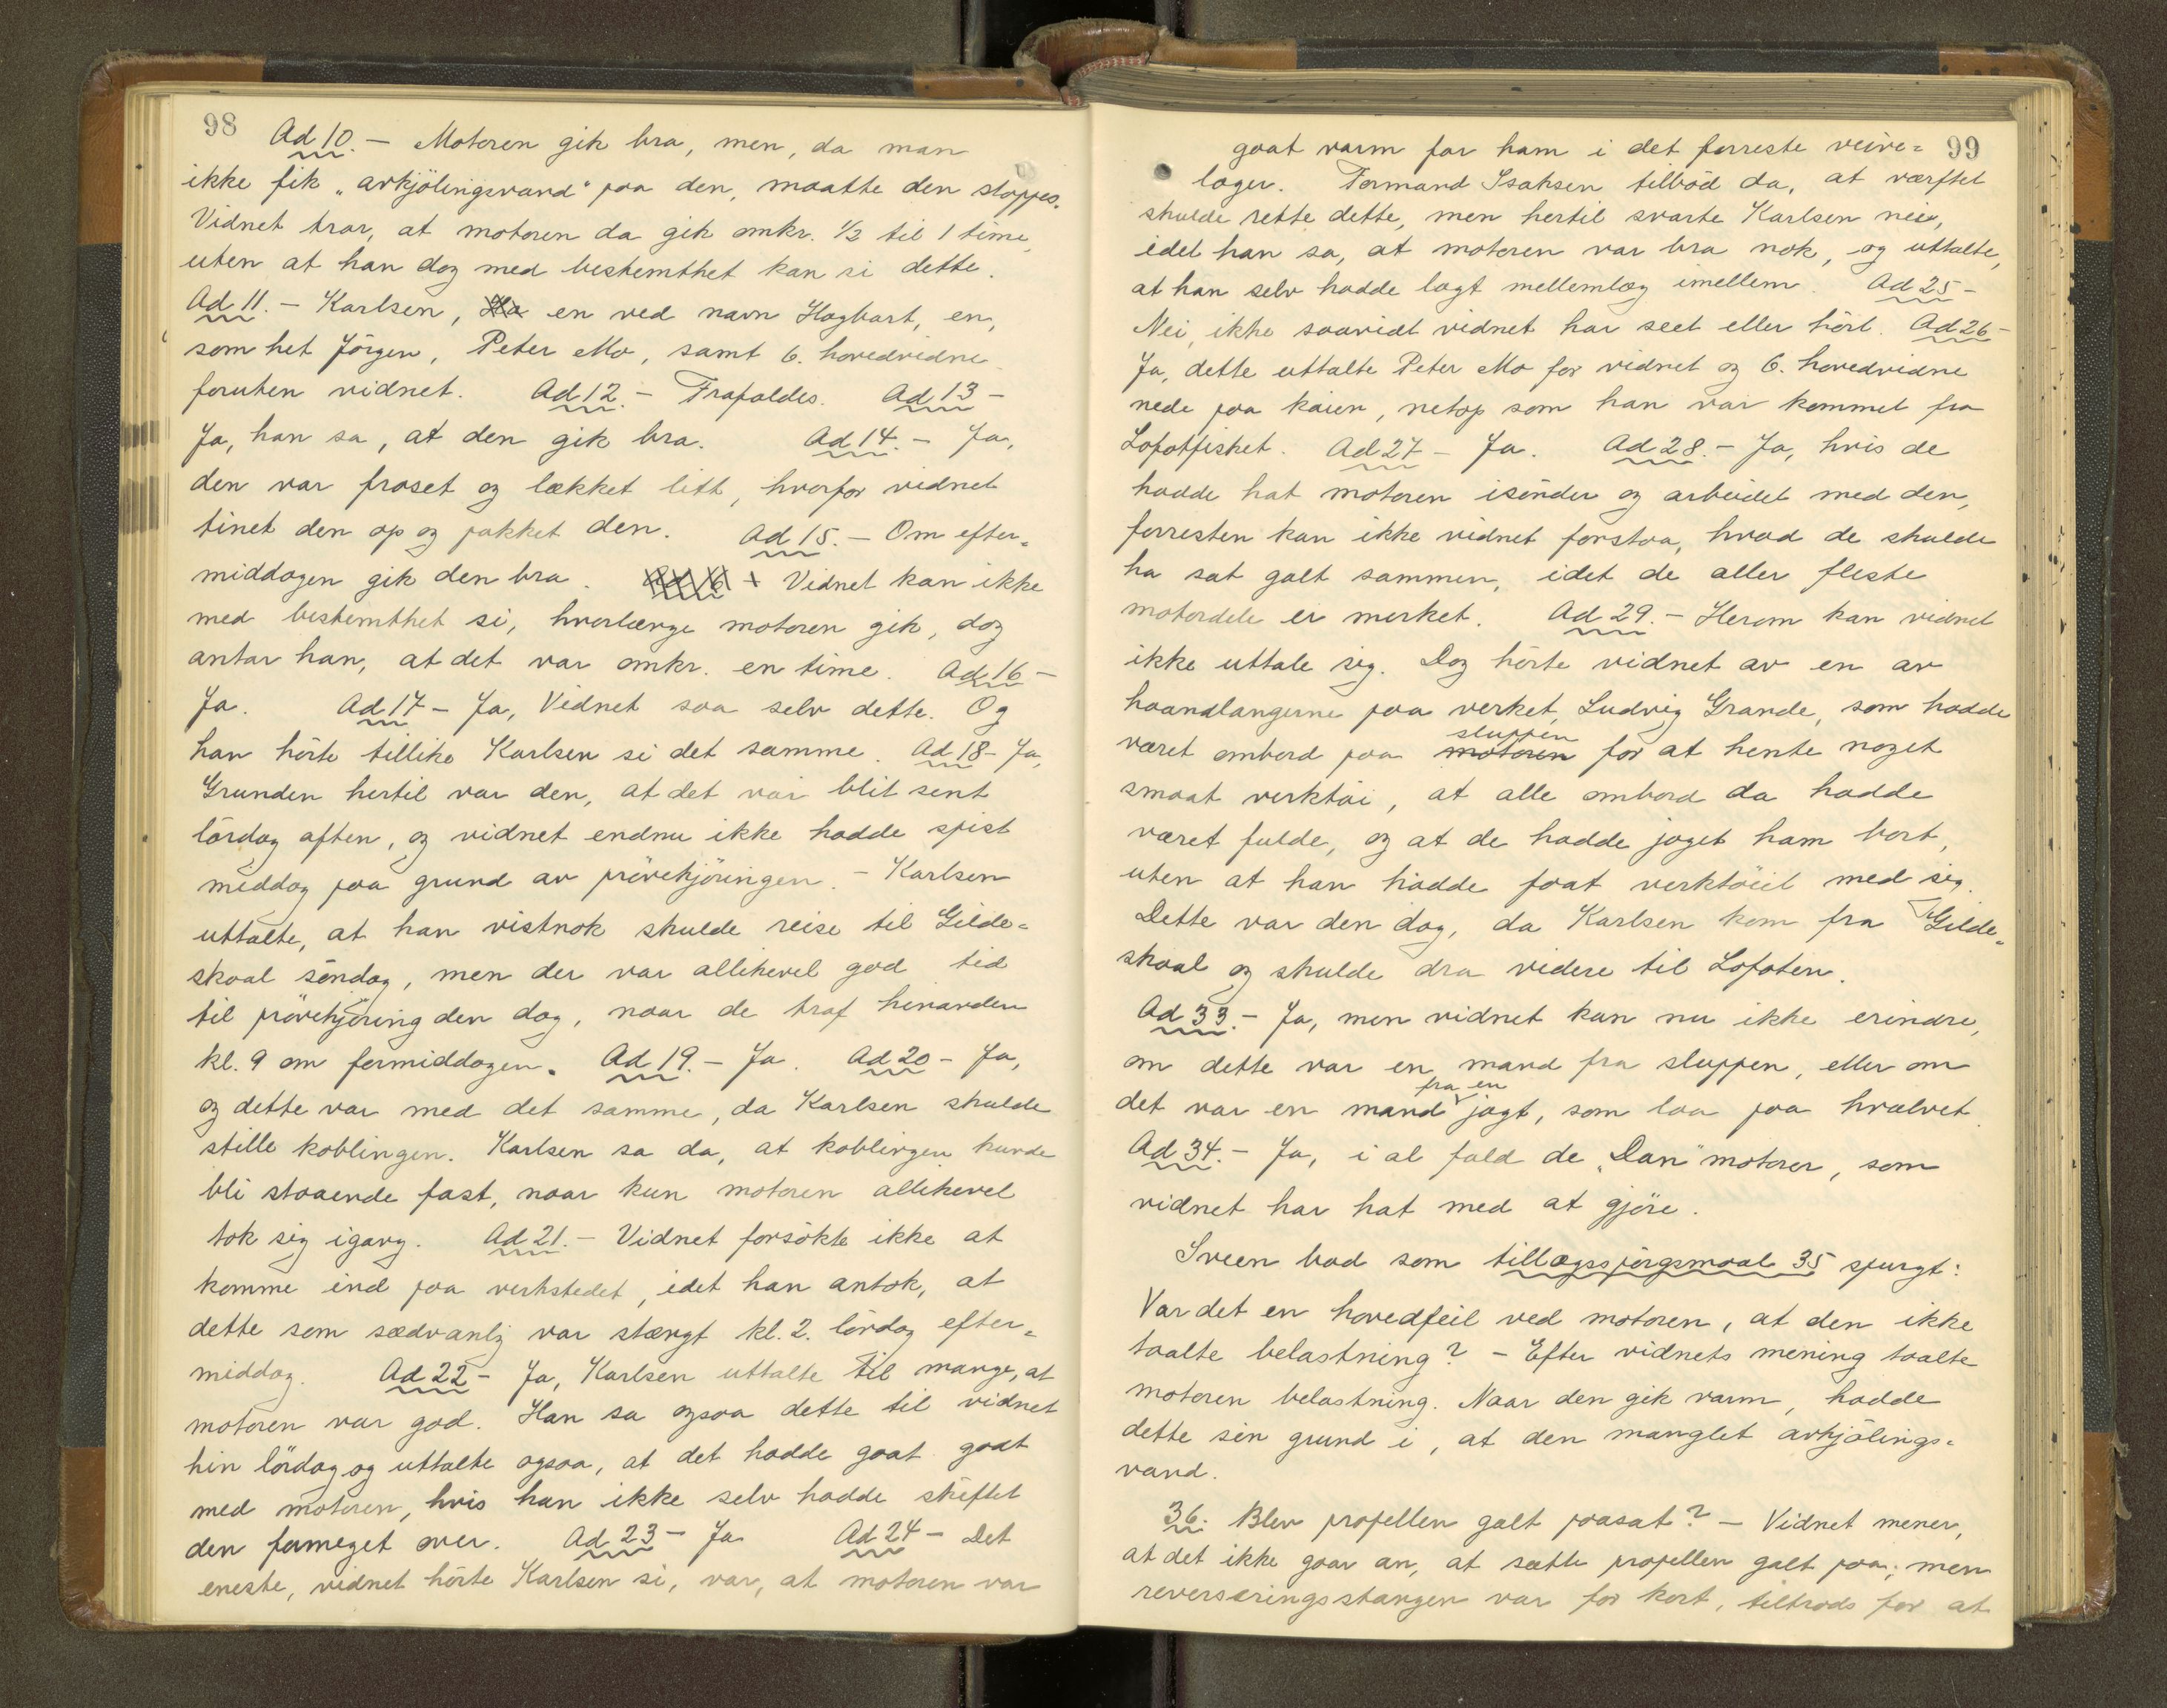 98
Ad 10. — Motoren gik bra, men, da man
ikke fik „avkjölingsvand" paa den, maatte den stoppes.
Vidnet tror, at motoren da gik omkr. 1/2 til 1 time,
uten at han dog med bestemthet kan si dette.
Ad 11. — Karlsen, Ha en ved navn Hagbart, en,
som het Jörgen, Peter Mo, samt 6. hovedvidne
foruten vidnet. Ad 12. — Frafaldes. Ad 13 —
Ja, han sa, at den gik bra. Ad 14. — Ja,
den var froset og lækket litt, hvorfor vidnet
tinet den op og pakket den. Ad 15. — Om efter=
middagen gik den bra. Ad 16 — Vidnet kan ikke
med bestemthet si, hvorlænge motoren gik, dog
antar han, at det var omkr. en time. Ad 16 —
Ja. Ad 17 — Ja, Vidnet saa selv dette. Og
han hörte tillike Karlsen si det samme. Ad 18 — Ja,
Grunden hertil var den, at det var blit sent
lördag aften, og vidnet endnu ikke hadde spist
middag paa grund av prövekjöringen. — Karlsen
uttalte, at han vistnok skulde reise til Gilde=
skaal söndag, men der var allikevel god tid
til prövekjöring den dag, naar de traf hinanden
kl. 9 om formiddagen. Ad 19. — Ja. Ad 20 — Ja,
og dette var med det samme, da Karlsen skulde
stille koblingen. Karlsen sa da, at koblingen kunde
bli staaende fast, naar kun motoren allikevel
tok sig igang. Ad 21. — Vidnet forsökte ikke at
komme ind paa verkstedet, idet han antok, at
dette som sædvanlig var stængt kl. 2. lördag efter=
middag. Ad 22 — Ja, Karlsen uttalte til mange, at
motoren var god. Han sa ogsaa dette til vidnet
hin lördag og uttalte ogsaa, at det hadde gaat godt
med motoren, hvis han ikke selv hadde skiftet
den formeget over. Ad 23 — Ja Ad 24 — Det
eneste, vidnet hörte Karlsen si, var, at motoren var
99
gaat varm for ham i det forreste veive=
lager. Formand Isaksen tilböd da, at værftet
skulde rette dette, men hertil svarte Karlsen nei,
idet han sa, at motoren var bra nok, og uttalte,
at han selv hadde lagt mellemlæg imellem. Ad 25 —
Nei, ikke saavidt vidnet har seet eller hört. Ad 26 —
Ja, dette uttalte Peter Mo for vidnet og 6. hovedvidne
nede paa kaien, netop som han var kommet fra
Lofotfisket. Ad 27 — Ja. Ad 28. — Ja, hvis de
hadde hat motoren isönder og arbeidet med den,
forresten kan ikke vidnet forstaa, hvad de skulde
ha sat galt sammen, idet de aller fleste
motordele er merket. Ad 29. — Herom kan vidnet
ikke uttale sig. Dog hörte vidnet av en av
haandlangerne paa verket, Ludvig Grande, som hadde
sluppen
været ombord paa motoren for at hente noget
smaat verktöi, at alle ombord da hadde
været fulde, og at de hadde jaget ham bort,
uten at han hadde faat verktöiet med sig.
Dette var den dag, da Karlsen kom fra Gilde=
skaal og skulde dra videre til Lofoten.
Ad 33. — Ja, men vidnet kan nu ikke erindre,
om dette var en mand fra sluppen, eller om
fra en
det var en mand jagt, som laa paa hvælvet.
Ad 34. — Ja, i al fald de „Dan" motorer, som
vidnet har hat med at gjöre.
Sveen bad som tillægsspörgsmaal 35 spurgt:
Var det en hovedfeil ved motoren, at den ikke
taalte belastning? — Efter vidnets mening taalte
motoren belastning. Naar den gik varm, hadde
dette sin grund i, at den manglet avkjölings=
vand.
36. Blev propellen galt paasat? — Vidnet mener,
at det ikke gaar an, at sætte propellen galt paa; men
reverseringsstangen var for kort, tiltrods for at